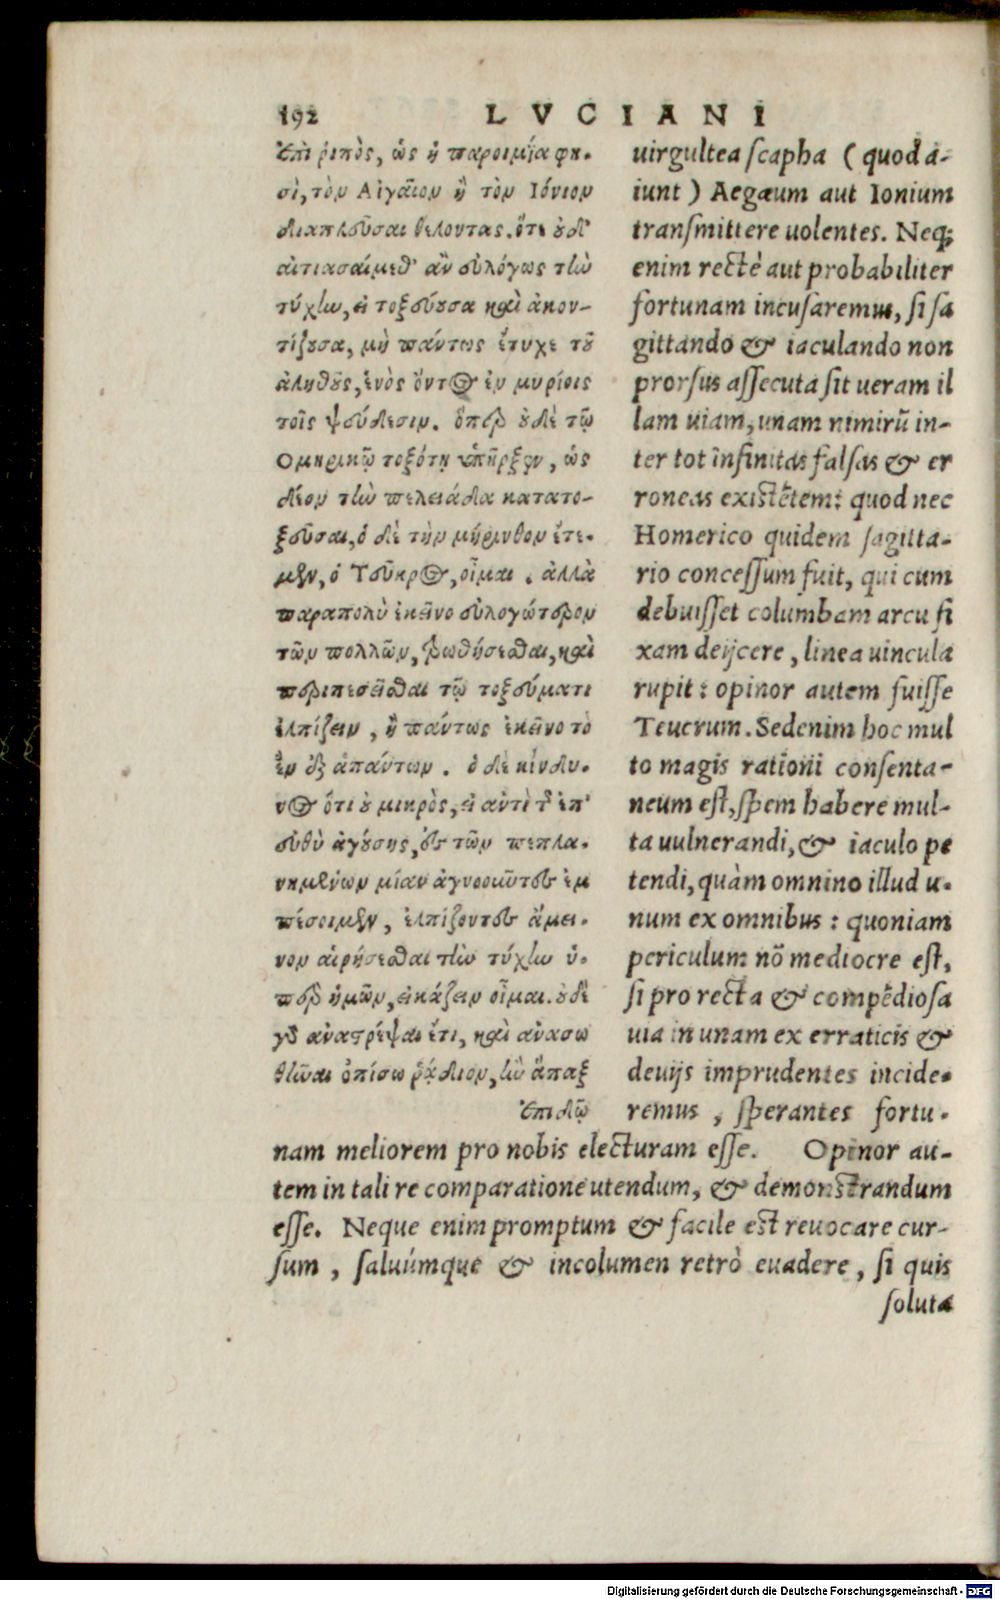 192 LVCIANI
ἐπὶ ῥιπὸς, ὡς ἡ παροιμία φη-
σὶ, τὸν Αἰγαῖον ἢ τὸν Ιόνιον
διαπλεῦσαι θέλοντας. ὅτε οὐδ'
αἰτιασαίμεθ' ἂν εὐλόγως τὴν
τύχην, εἰ τοξεύουσα καὶ ἀκον-
τίζουσα, μὴ πάντως ἔτυχε τοῦ
ἀληθοῦς, ἑνὸς ὄντος ἐν μυρίοις
τοῖς ψεύδεσιν. ὅπερ οὐδὲ τῷ
Ομηρικῷ τοξότῃ ὑπῆρξεν, ὡς
δέον τὴν πελειάδα κατατο-
ξεῦσαι, ὁ δὲ τὴν μήρινθον ἔτε-
μεν, ὁ Τεῦκρος, οἶμαι. ἀλλὰ
παραπολὺ ἐκεῖνο εὐλογώτερον
τῶν πολλῶν, τρωθήσεσθαι, καὶ
περιπεσεῖσθαι τῷ τοξεύματι
ἐλπίζειν, ἢ πάντως ἐκεῖνο τὸ
ἓν ἐξ ἁπάντων. ὁ δὲ κίνδυ-
νος ὅτι οὐ μικρὸς, εἰ αὐτὶ τῆς ἐπ'
εὐθὺ ἀγούσης, ἐς τῶν πεπλα-
νημένων μίαν ἀγνοοῦντες ἐμ
πέσοιμεν, ἐλπίζοντες ἄμει-
νον αἱρήσεσθαι τὴν τύχην ὑ-
πὲρ ἡμῶν, εἰκάζειν οἶμαι. οὐδὲ
γὰρ ἀναστρέψαι ἔτι, καὶ ἀνασω
θῆναι ὀπίσω ῥᾴδιον, ἢν ἅπαξ
ἐπιδῷ
uirgultea scapha (quod a-
iunt) Aegæum aut Ionium
transmittere uolentes. Neq;
enim rectè aut probabiliter
fortunam incusaremus, si sa
gittando & iaculando non
prorsus assecuta sit ueram il
lam uiam, unam nimirũ in-
ter tot infinitas falsas & er
roneas existẽtem: quod nec
Homerico quidem sagitta-
rio concessum fuit, qui cum
debuisset columbam arcu fi
xam deijcere, linea uincula
rupit: opinor autem fuisse
Teucrum. Sedenim hoc mul
to magis rationi consenta-
neum est, spem habere mul-
ta uulnerandi, & iaculo pe
tendi, quàm omnino illud u-
num ex omnibus: quoniam
periculum nõ mediocre est,
si pro recta & compẽdiosa
uia in unam ex erraticis &
deuijs imprudentes incide-
remus, sperantes fortu-
nam meliorem pro nobis electuram esse. Opinor au-
tem in tali re comparatione utendum, & demonstrandum
esse. Neque enim promptum & facile est reuocare cur-
sum, saluúmque & incolumen retrò euadere, si quis
soluta
Digitalisierung gefördert durch die Deutsche Forschungsgemeinschaft - DFG